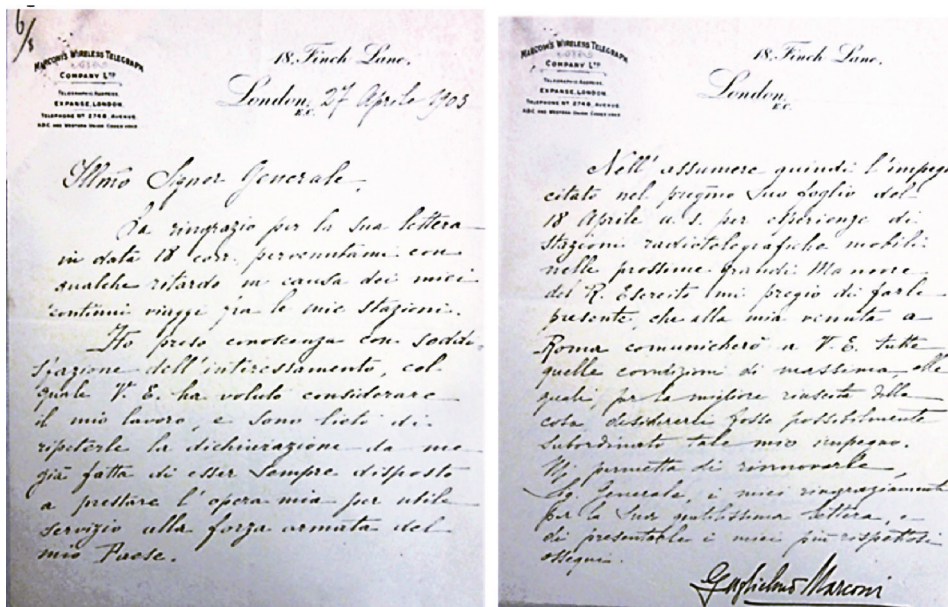 6/8
MARCONI'S WIRELESS TELEGRAPH
COMPANY Ltd
TELEGRAPHIC ADDRESS,
EXPANSE, LONDON.
TELEPHONE No 2748, AVENUE.
A.B.C. AND WESTERN UNION CODES USED
18, Finch Lane,
London, 27 Aprile 1903
E.C.
Illmo Signor Generale,
La ringrazio per la sua lettera
in data 18 corr. pervenutami con
qualche ritardo in causa dei miei
continui viaggi fra le mie stazioni.
Ho preso conoscenza con soddi-
sfazione dell'interessamento, col
quale V. E. ha voluto considerare
il mio lavoro, e sono lieto di
ripeterle la dichiarazione da me
già fatta di esser sempre disposto
a prestare l'opera mia per utile
servizio alla forza armata del
mio Paese.
MARCONI'S WIRELESS TELEGRAPH
COMPANY Ltd
TELEGRAPHIC ADDRESS,
EXPANSE, LONDON.
TELEPHONE No 2748, AVENUE.
A.B.C. AND WESTERN UNION CODES USED
18, Finch Lane,
London,
E.C.
Nell'assumere quindi l'impeg
citato nel pregmo Suo foglio del
18 Aprile u. s. per esperienze di
stazioni radiotelegrafiche mobili
nelle prossime grandi Manovre
del R. Esercito mi pregio di farle
presente, che alla mia venuta a
Roma comunicherò a V. E. tutte
quelle condizioni di massima alle
quali, per la migliore riuscita della
cosa, desidererei fosse possibilmente
subordinato tale mio impegno.
Mi permetta di rinnovarle,
Sig. Generale, i miei ringraziamenti
per la Sua gentilissima lettera, e
di presentarle i miei più rispettosi
ossequi.
Guglielmo Marconi